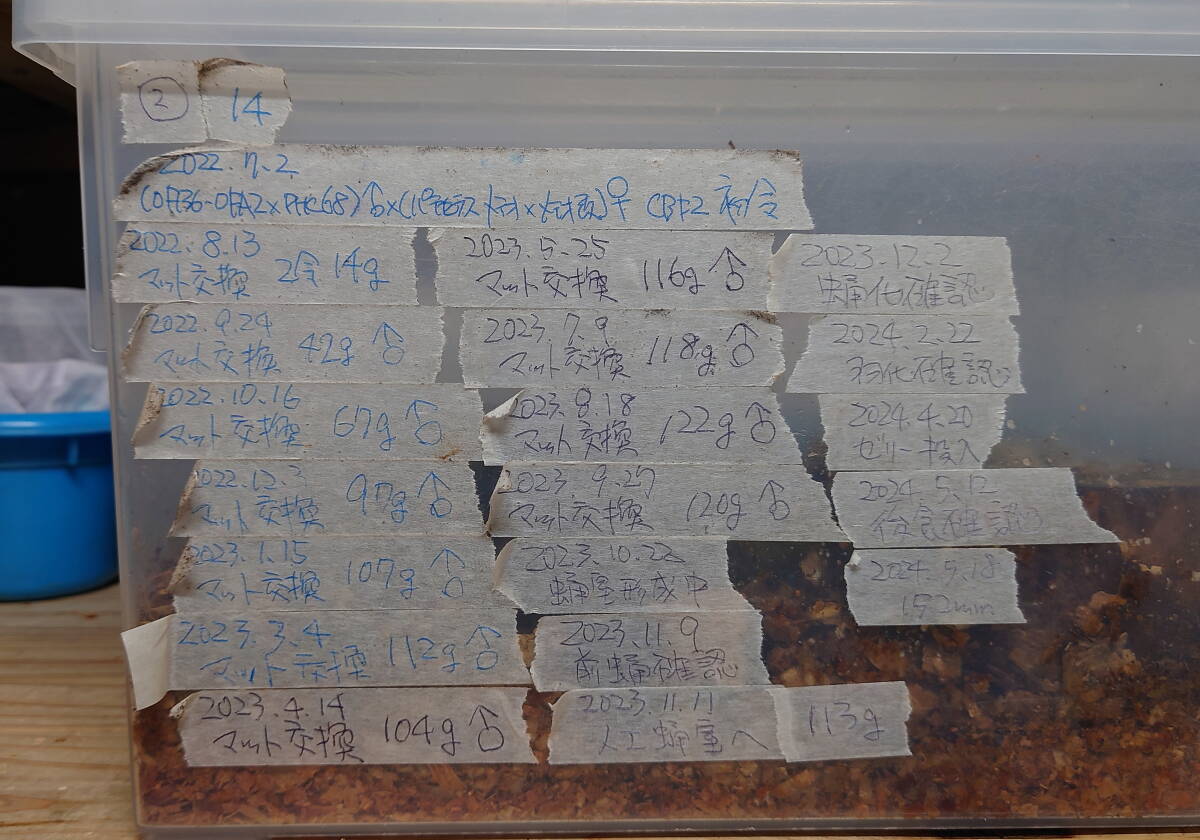 ② 14
2022.7.2
(OF136-OFA2×PHC68)♂×( × )♀ CBF2 初令
2022.8.13
マット交換 2令 14g
2022.9.24
マット交換 42g ♂
2022.10.16
マット交換 67g ♂
2022.12.3
マット交換 97g ♂
2023.1.15
マット交換 107g ♂
2023.3.4
マット交換 112g ♂
2023.4.14
マット交換 104g ♂
2023.5.25
マット交換 116g ♂
2023.7.9
マット交換 118g ♂
2023.8.18
マット交換 122g ♂
2023.9.27
マット交換 120g ♂
2023.10.22
蛹室形成中
2023.11.9
前蛹確認
2023.11.11
人工蛹室へ 113g
2023.12.2
蛹化確認
2024.2.22
羽化確認
2024.4.20
ゼリー投入
2024.5.12
後食確認
2024.5.18
152mm